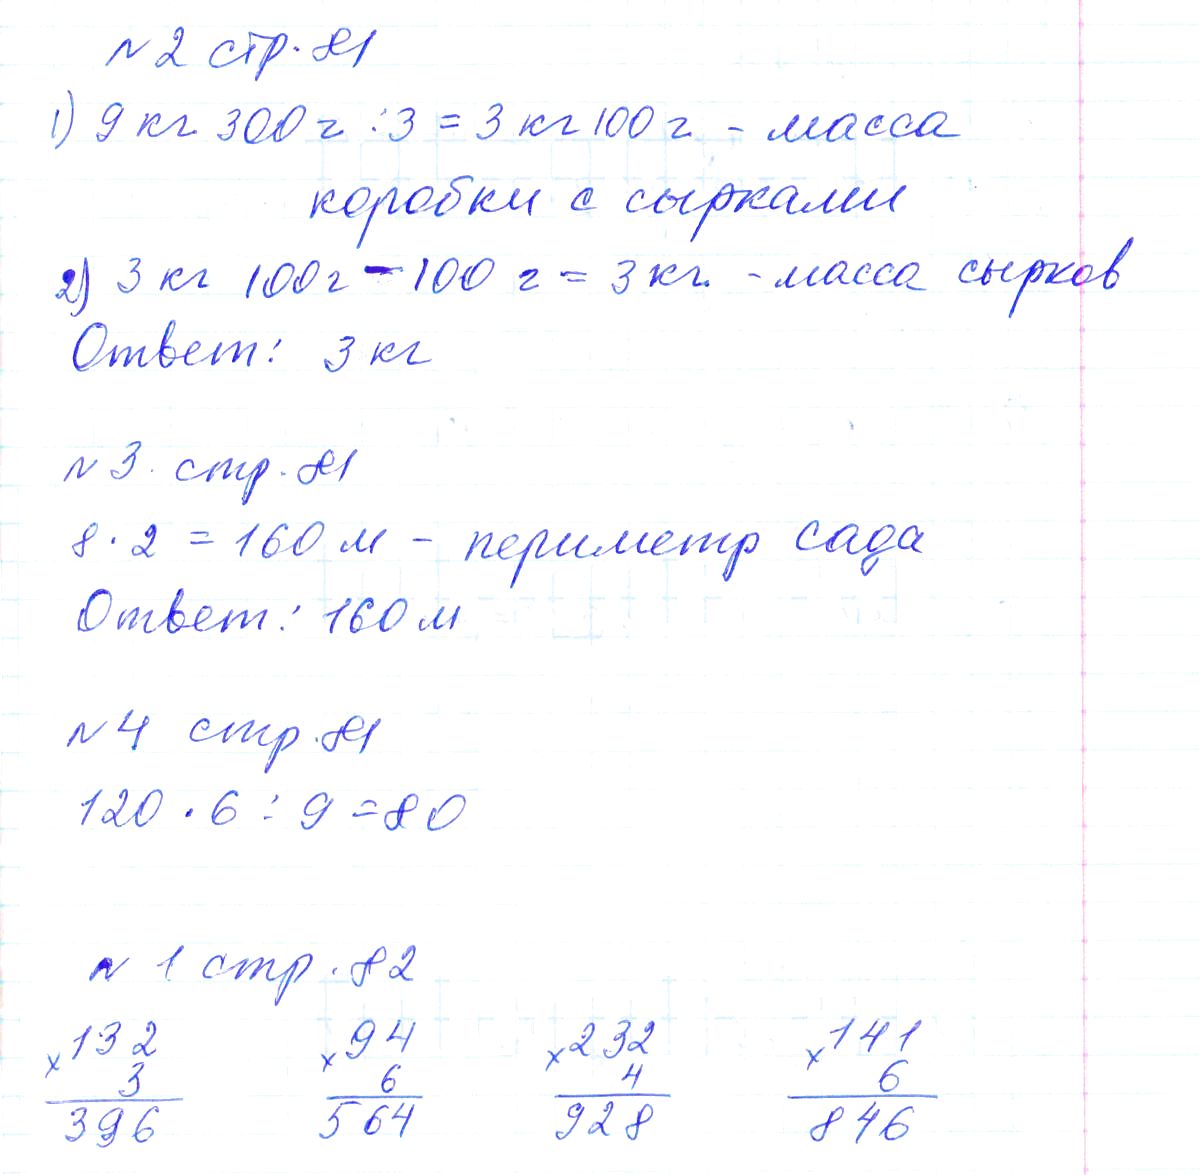 №2 стр. 81
1) 9 кг 300 г : 3 = 3 кг 100 г - масса
коробки с сырками
2) 3 кг 100 г - 100 г = 3 кг. - масса сырков
Ответ: 3 кг
№3. стр. 81
8 · 2 = 160 м - периметр сада
Ответ: 160 м
№4 стр. 81
120 · 6 : 9 = 80
№ 1 стр. 82
×132 ×94 ×232 ×141
3 6 4 6
396 564 928 846